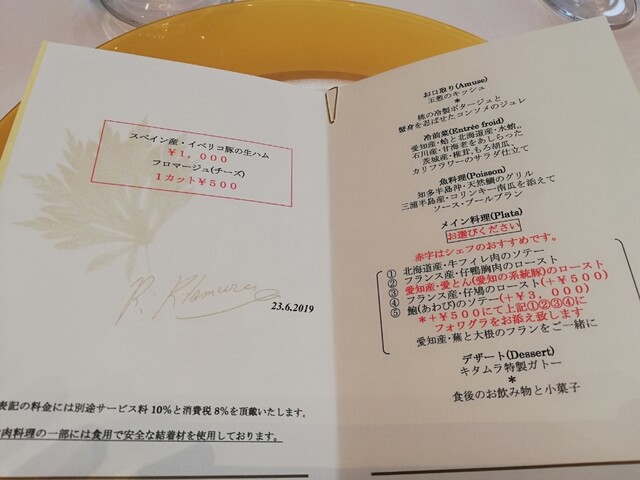 スペイン産・イベリコ豚の生ハム
￥1，000
フロマージュ(チーズ)
1カット￥500
R. Kitamura
23.6.2019
表記の料金には別途サービス料10%と消費税8%を頂戴いたします。
肉料理の一部には食用で安全な結着材を使用しております。
お口取り(Amuse)
玉葱のキッシュ
*
柿の冷製ポタージュと
蟹身を忍ばせたコンソメのジュレ
冷前菜(Entrée froid)
愛知産・蛤と北海道産・水蛸、
石川産・甘海老をあしらった
茨城産・椎茸、もろ胡瓜、
カリフラワーのサラダ仕立て
魚料理(Poisson)
知多半島沖・天然鯛のグリル
三浦半島産・コリンキー南瓜を添えて
ソース・ブールブラン
メイン料理(Plats)
お選びください
赤字はシェフのおすすめです。
① 北海道産・牛フィレ肉のソテー
② フランス産・仔鴨胸肉のロースト
③ 愛知産・愛とん(愛知の系統豚)のロースト
④ フランス産・仔鳩のロースト(+￥500)
⑤ 鮑(あわび)のソテー(+￥3，000)
*+￥500にて上記①②③④に
フォワグラをお添え致します
愛知産・蕪と大根のフランをご一緒に
デザート(Dessert)
キタムラ特製ガトー
*
食後のお飲み物と小菓子